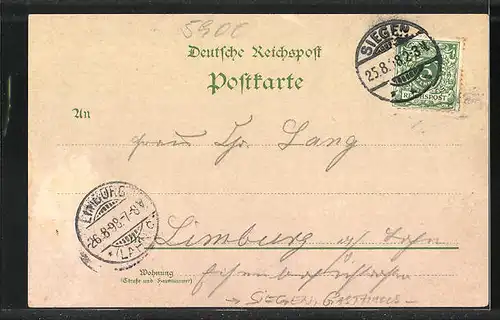 5900
Deutsche Reichspost
Postkarte
SIEGEN
25.8.98.2-3N
REICHSPOST
An
Frau Chr. Lang
LIMBURG
26.8.98.7-8V
*(LAHN)
Limburg a/ Lahn
Wohnung
(Straße und Hausnummer)
→ SIEGEN,